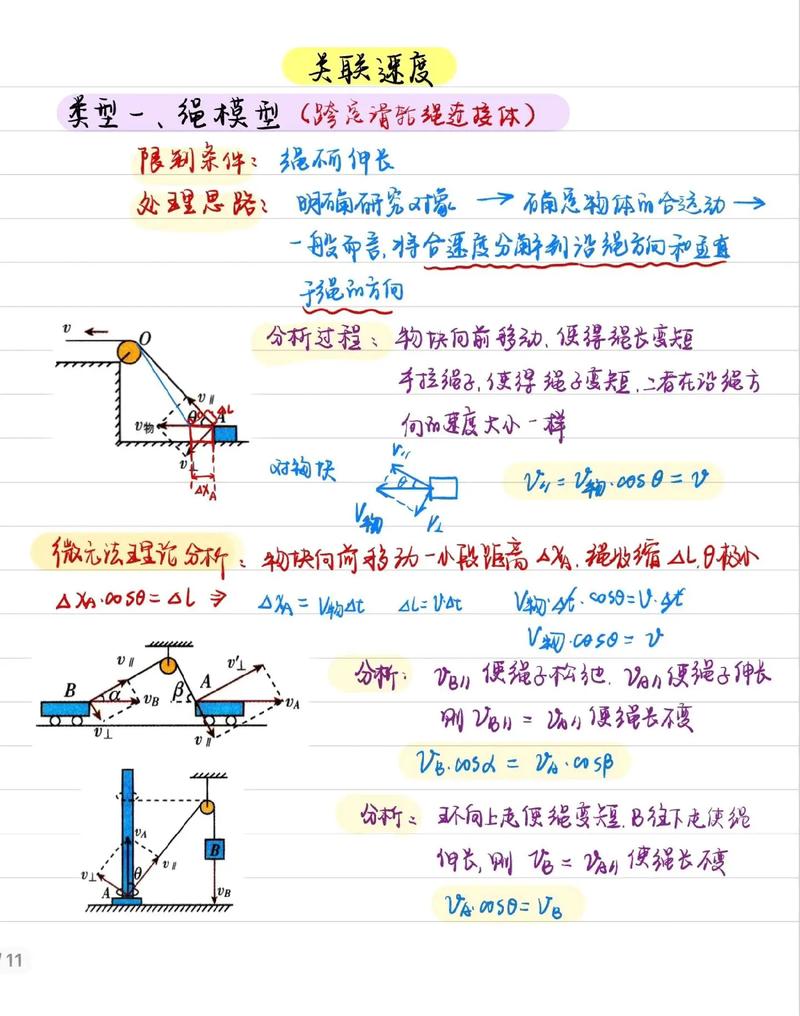 关联速度
类型一、绳模型（跨定滑轮绳连接体）
限制条件：绳不可伸长
处理思路：明确研究对象 → 确定物体的合运动 →
一般而言，将合速度分解到沿绳方向和垂直
于绳的方向
分析过程：物块向前移动，使得绳长变短
手拉绳子，使得绳子变短，二者在沿绳方
向的速度大小一样
v
O
v∥
θ
ΔL
A
v物
v⊥
ΔxA
对物块
v∥
θ
V物
V⊥
v∥ = v物·cosθ = v
微元法理论分析：物块向前移动一小段距离ΔxA，绳收缩ΔL，θ极小
ΔxA·cosθ = ΔL ⇒ ΔxA = V物Δt ΔL = V·Δt V物·Δt·cosθ = V·Δt
V物·cosθ = v
分析：vB∥使绳子松弛，vA∥使绳子伸长
则 vB∥ = vA∥使绳长不变
vB·cosα = vA·cosβ
v∥
v'⊥
B
α
vB
β
A
vA
v⊥
v∥
分析：环向上走使绳变短，B往下走使绳
伸长，则 vB = vA∥使绳长不变
vA·cosθ = vB
vA
B
v⊥
θ
v∥
A
vB
/11